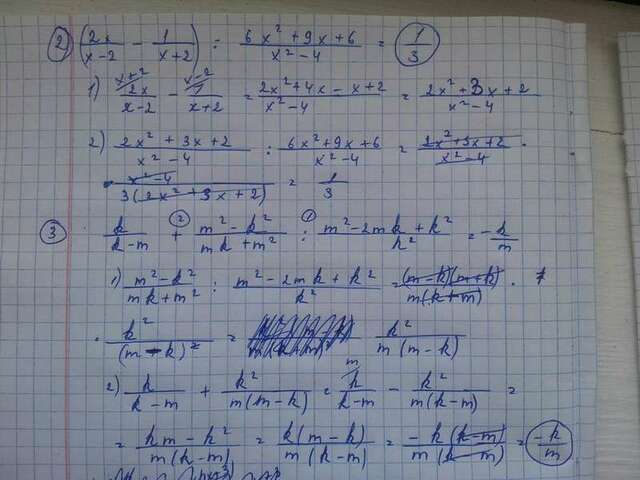 2) (2x/(x-2) - 1/(x+2)) : (6x²+9x+6)/(x²-4) = 1/3
1) 2x/(x-2) ^(x+2) - 1/(x+2) ^(x-2) = (2x²+4x-x+2)/(x²-4) = (2x²+3x+2)/(x²-4)
2) (2x²+3x+2)/(x²-4) : (6x²+9x+6)/(x²-4) = (2x²+3x+2)/(x²-4) ·
· (x²-4)/(3(2x²+3x+2)) = 1/3
3) k/(k-m) +② (m²-k²)/(mk+m²) :① (m²-2mk+k²)/k² = -k/m
1) (m²-k²)/(mk+m²) : (m²-2mk+k²)/k² = (m-k)(m+k)/(m(k+m)) ·
· k²/(m-k)² = k²/(m(m-k))
2) k/(k-m) + k²/(m(m-k)) = k/(k-m) ^m - k²/(m(k-m)) =
= (km-k²)/(m(k-m)) = k(m-k)/(m(k-m)) = -k(k-m)/(m(k-m)) = -k/m